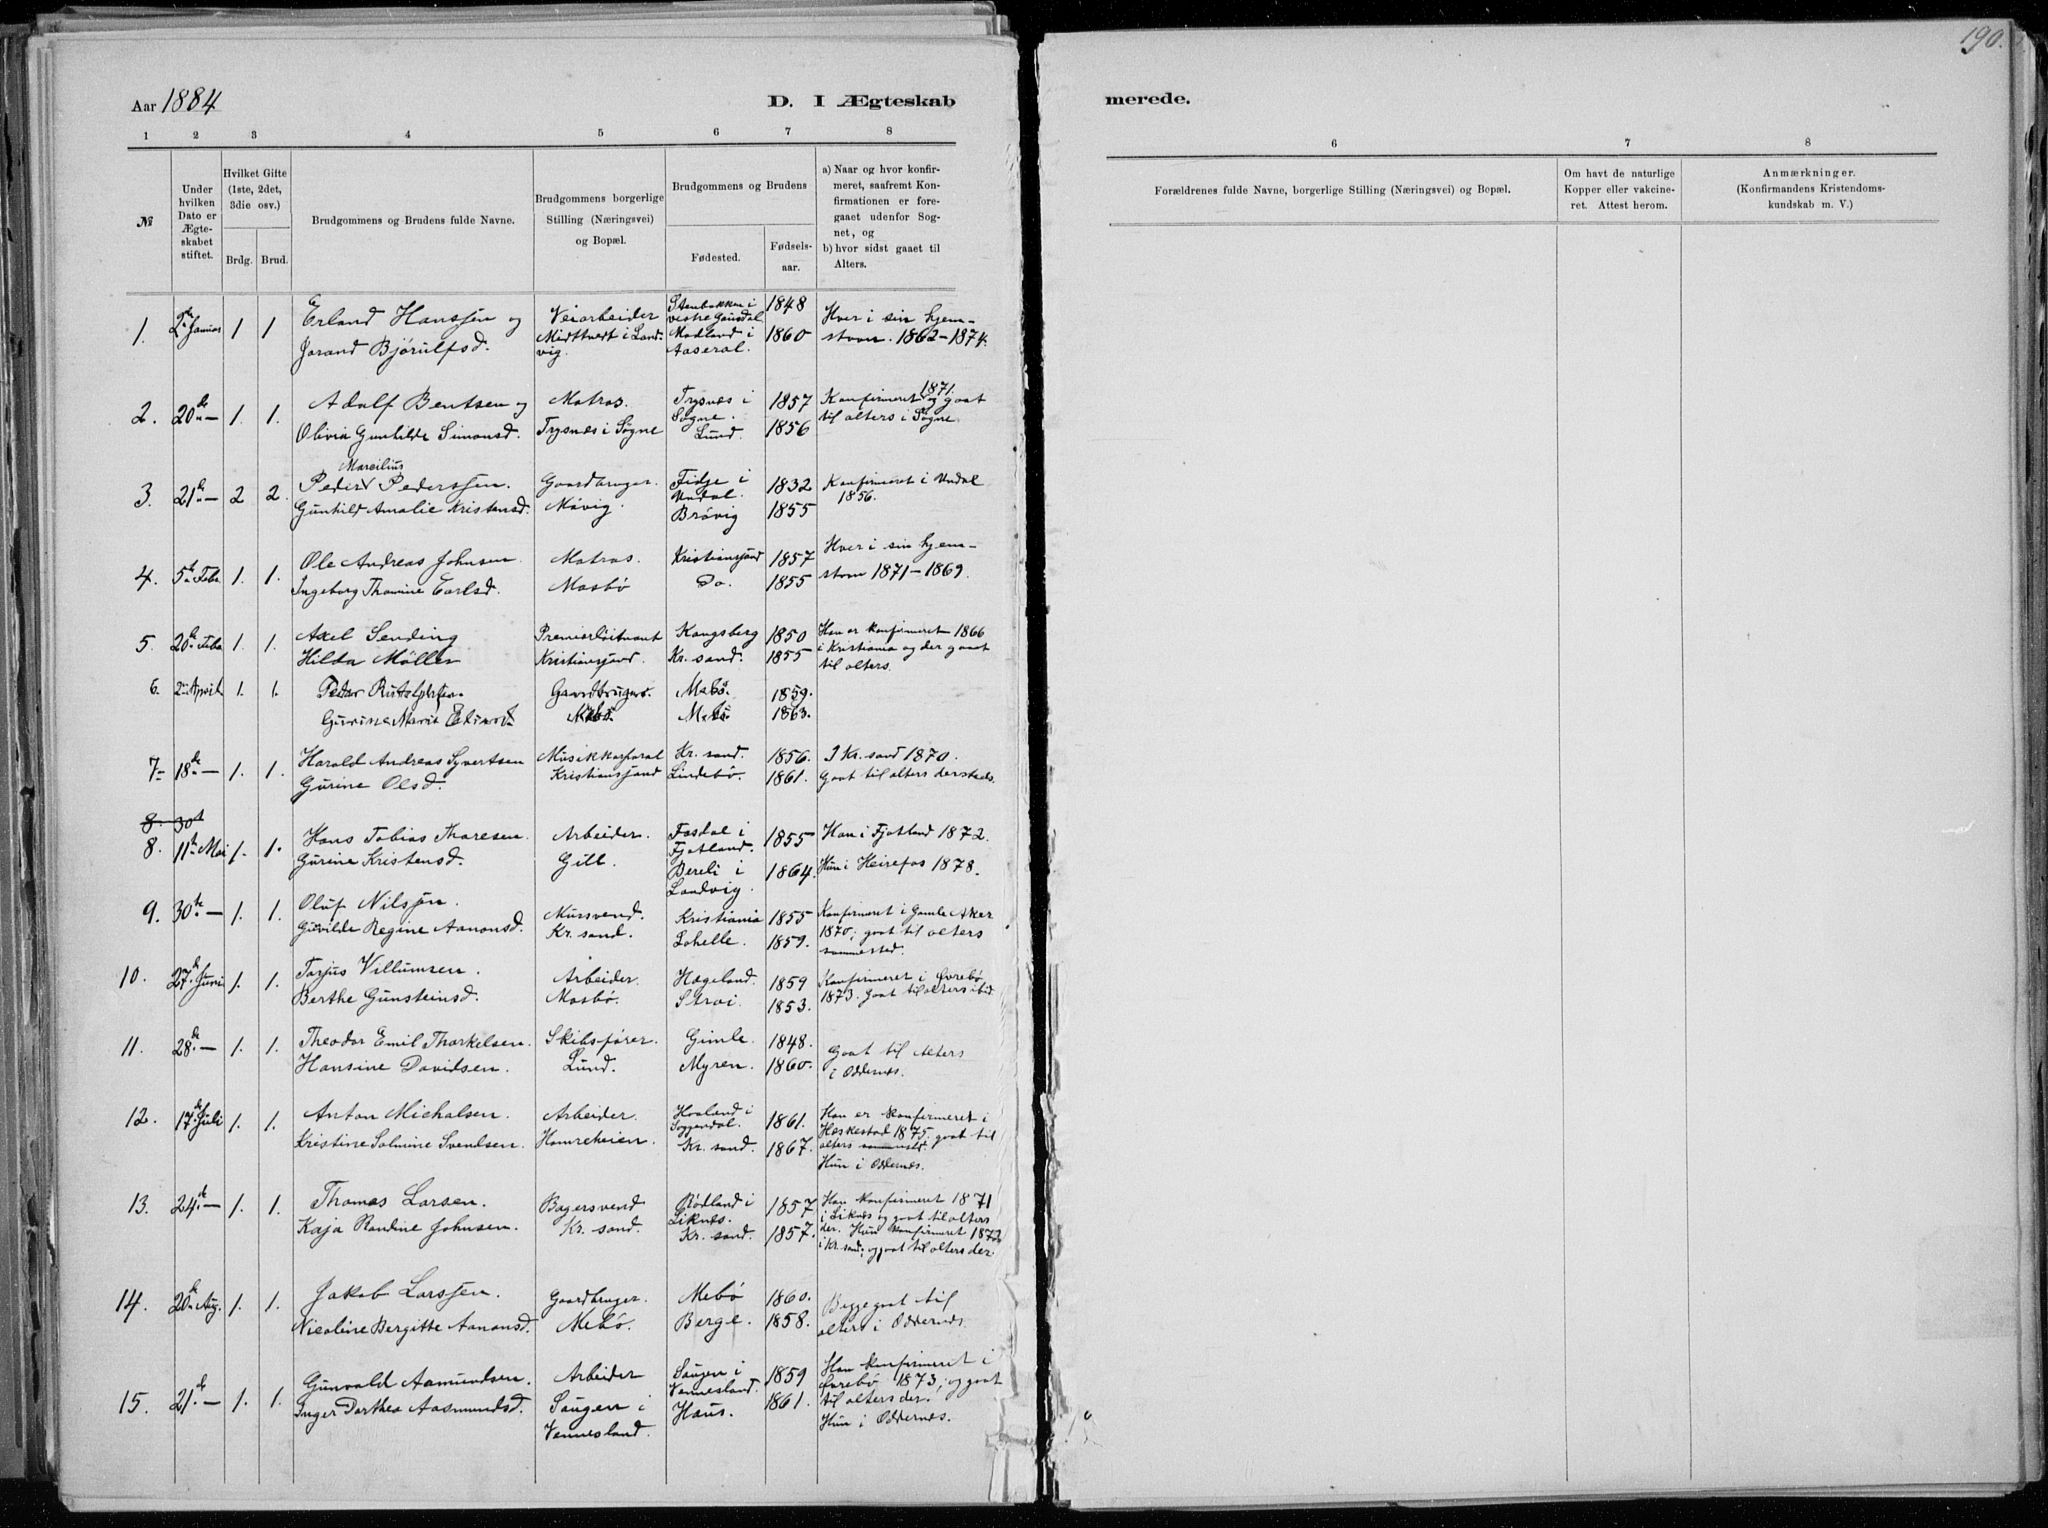 190.
Aar 1884
D. I Ægteskab
merede.
1 2 3 4 5 6 7 8
№
Under hvilken Dato er Ægteskabet stiftet.
Hvilket Gifte (1ste, 2det, 3die osv.)
Brdg. Brud.
Brudgommens og Brudens fulde Navne.
Brudgommens borgerlige Stilling (Næringsvei) og Bopæl.
Brudgommens og Brudens
Fødested.
Fødsels-aar.
a) Naar og hvor konfirmeret, saafremt Konfirmationen er foregaaet udenfor Sognet, og
b) hvor sidst gaaet til Alters.
6 7 8
Forældrenes fulde Navne, borgerlige Stilling (Næringsvei) og Bopæl.
Om havt de naturlige Kopper eller vakcineret. Attest herom.
Anmærkninger.
(Konfirmandens Kristendomskundskab m. V.)
1. 2 Januar 1 1 Erland Hanssen og Veiarbeider Stenbakken i vestre Gausdal 1848 Hver i sin hjem-
Jorand Bjørulfsd. Midttvedt i Landvig. Modland i Aaseral. 1860 stavn. 1862-1874.
2. 20de — 1. 1. Adolf Bentsen og Matros. Trysnes i Søgne. 1857 Konfirmeret 1871 og gaat
Olivia Gunhilde Simonsd. Trysnes i Søgne Lund. 1856 til alters i Søgne
3. 21de — 2 2. Peder Marcilius Pederssen. Gaardbruger. Fidje i Undal. 1832 Konfirmeret i Undal 1856.
Gunhild Amalie Kristensd. Møvig. Brøvig 1855
4. 5te Febr 1. 1. Ole Andreas Johnsen Matros. Kristianssand 1857 Hver i sin hjem-
Ingeborg Thomine Carlsd. Mosbø Do. 1855 stavn 1871-1869.
5. 20de Febr 1. 1. Axel Sending Premierløitnant Kongsberg 1850 Han er konfirmeret 1866
Hilda Møller Kristianssand. Kr. sand. 1855 i Kristiania og der gaat til alters.
6. 2 April 1. 1. Peder Gaardbruger. Mebø. 1859.
Gurine Marie Mebø. Mebø 1863.
7- 18de — 1. 1. Harald Andreas Syvertsen Musikkorporal Kr. sand. 1856. I Kr. sand 1870.
Gurine Olsd. Kristianssand Lindebø. 1861. Gaat til alters dersteds.
8. 30t
8. 11te Mai 1. 1. Hans Tobias Thoresen. Arbeider. Fosdal i Fjotland. 1855 Han i Fjotland 1872.
Gurine Kristensd. Gill. Bereli i Landvig. 1864. Hun i Heirefos 1878.
9. 30te — 1. 1. Oluf Nilssen. Mursvend. Kristiania 1855 Konfirmeret i Gamle Aker
Gunvilde Regine Aanonsd. Kr. sand. Lohelle. 1859. 1870; gaat til alters sammested.
10. 27de Juni 1. 1. Torjus Villumsen. Arbeider. Hægeland. 1859 Konfirmeret i Øvrebø
Berthe Gunsteinsd. Mosbø. Strai. 1853. 1873. Gaat til alters ibid
11. 28de — 1. 1. Theodor Emil Thorkelsen. Skibsfører. Gimle. 1848. Gaat til alters
Hansine Davidsen. Lund. Myren. 1860. i Oddernes.
12. 17de Juli 1. 1. Anton Michalsen. Arbeider. Hovland i Soggendal. 1861. Han er konfirmeret i
Kristine Solmine Svendsen. Homreheien. Kr. sand. 1867. Heskestad 1875; gaat til alters sammested. Hun i Oddernes.
13. 24de — 1. 1. Thomas Larsen. Bagersvend Rødland i Liknes. 1857 Han konfirmeret 1871
Kaja Randine Johnsen. Kr. sand. Kr. sand. 1857. i Liknes og gaat til alters der. Hun konfirmeret 1872 i Kr. sand; og gaat til alters der.
14. 20de Aug. 1. 1. Jakob Larssen. Gaardbruger. Mebø 1860. Begge gaat til
Nicoline Bergitte Aanonsd. Mebø. Berge. 1858. alters i Oddernes.
15. 21de — 1. 1. Gunvald Aamundsen. Arbeider Saugen i Vennesland. 1859 Han konfirmeret i
Inger Dorthea Aasmundsd. Saugen i Vennesland. Haus. 1861. Øvrebø 1873; og gaat til alters der. Hun i Oddernes.